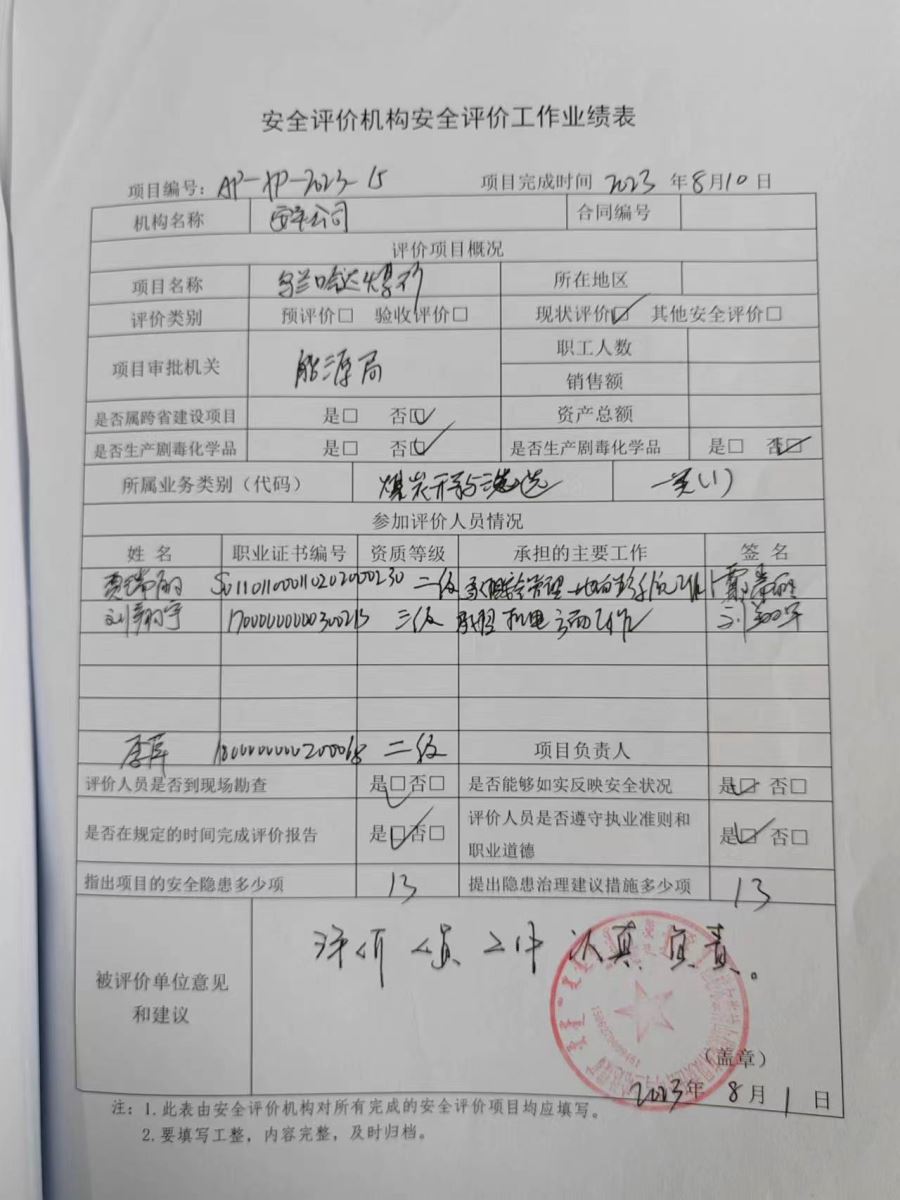 安全评价机构安全评价工作业绩表
项目编号：AP-XP-2023-15 项目完成时间 2023 年 8月10日
机构名称 安平公司 合同编号
评价项目概况
项目名称 乌兰哈达煤矿 所在地区
评价类别 预评价□ 验收评价□ 现状评价☑ 其他安全评价□
项目审批机关 能源局 职工人数
销售额
是否属跨省建设项目 是□ 否☑ 资产总额
是否生产剧毒化学品 是□ 否☑ 是否生产剧毒化学品 是□ 否☑
所属业务类别（代码） 煤炭开采与洗选 一类(1)
参加评价人员情况
姓 名 职业证书编号 资质等级 承担的主要工作 签 名
S011011000110202000230 二级
刘翔宇 1700000000300215 三级 承担机电方面工作 刘翔宇
1800000000200068 二级 项目负责人
评价人员是否到现场勘查 是☑否□ 是否能够如实反映安全状况 是☑ 否□
是否在规定的时间完成评价报告 是☑否□ 评价人员是否遵守执业准则和
职业道德 是☑ 否□
指出项目的安全隐患多少项 13 提出隐患治理建议措施多少项 13
被评价单位意见
和建议
评价人员工作认真负责。
（盖章）
2023年 8月1日
注：1.此表由安全评价机构对所有完成的安全评价项目均应填写。
2.要填写工整，内容完整，及时归档。